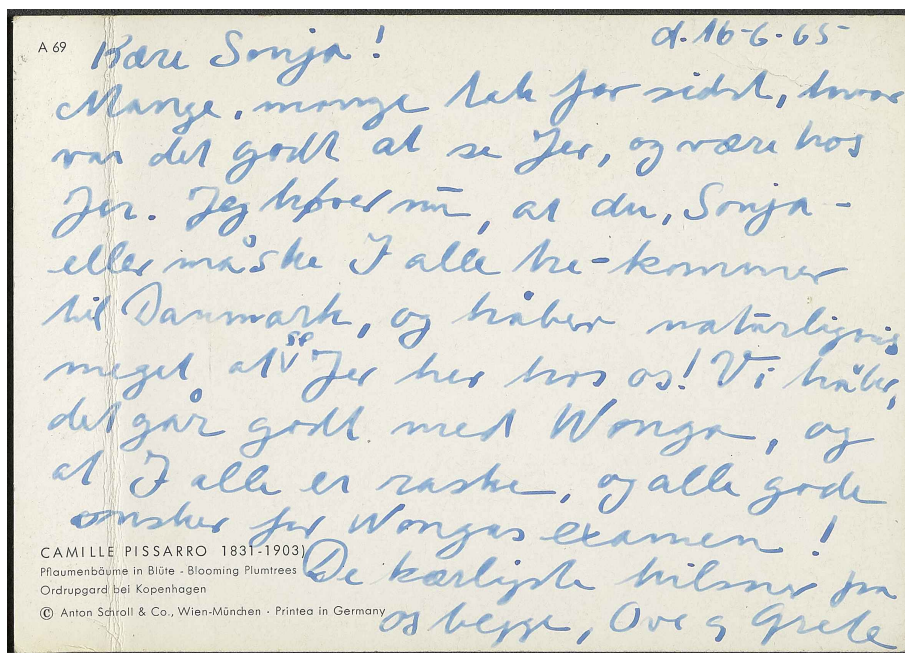 A 69
d. 16-6-65
Kære Sonja!
Mange, mange tak for sidst, hvor
var det godt at se Jer, og være hos
Jer. Jeg hører nu, at du, Sonja -
eller måske I alle tre - kommer
til Danmark, og håber naturligvis
meget at se Jer her hos os! Vi håber,
det går godt med Wonga, og
at I alle er raske, og alle gode
ønsker for Wongas examen!
De kærligste hilsner fra
os begge, Ove og Grete
CAMILLE PISSARRO 1831-1903)
Pflaumenbäume in Blüte - Blooming Plumtrees
Ordrupgard bei Kopenhagen
© Anton Schroll & Co., Wien-München · Printed in Germany